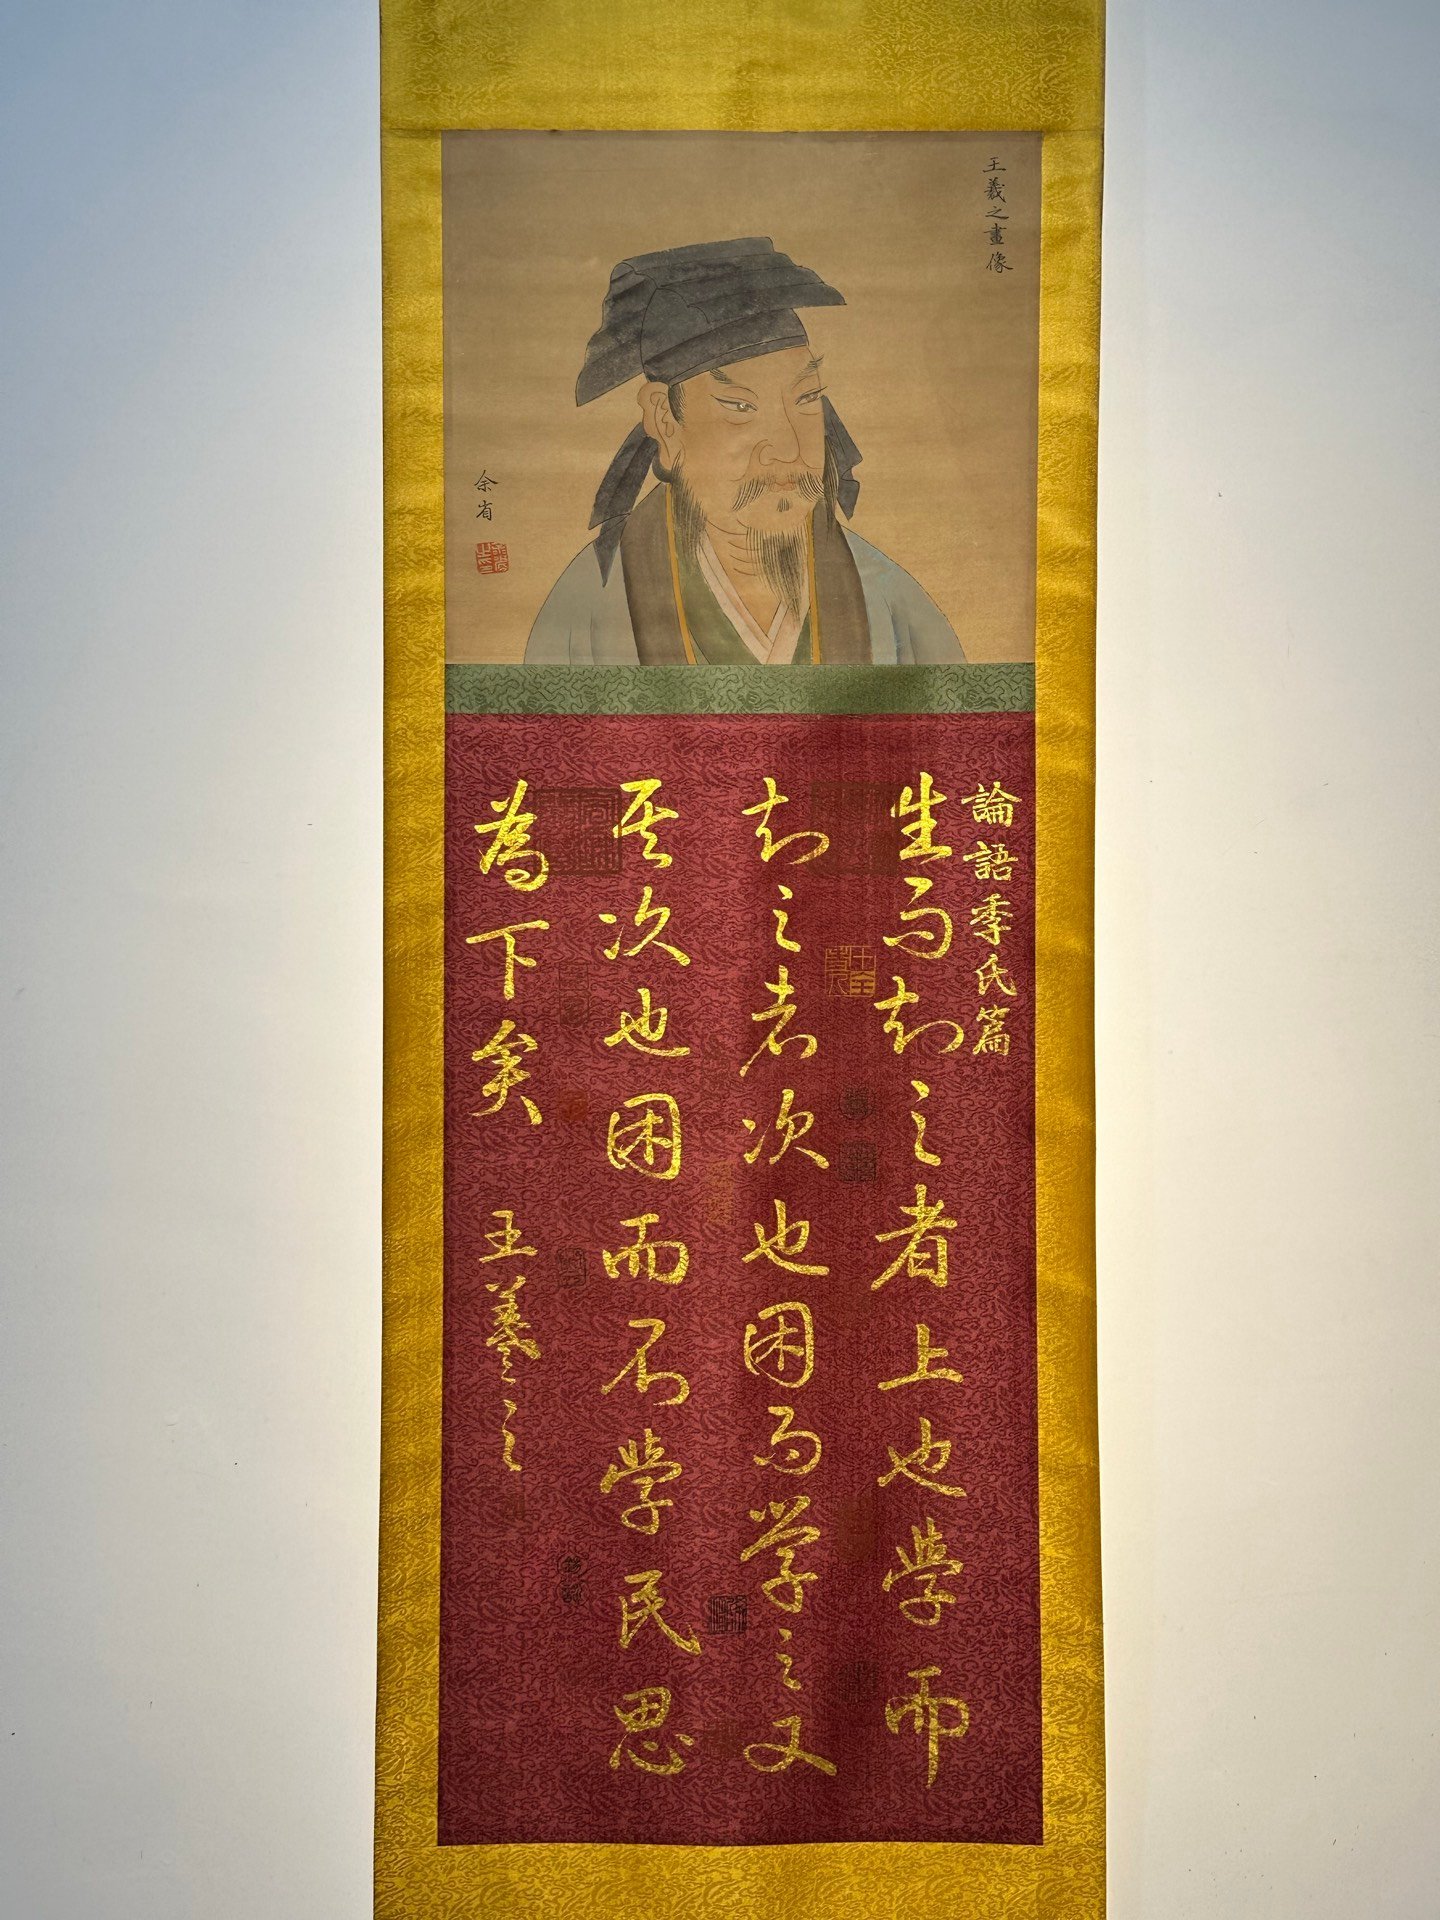 王羲之畫像
余省
論語季氏篇
生而知之者上也學而
知之者次也困而學之又
其次也困而不學民思
為下矣
王羲之